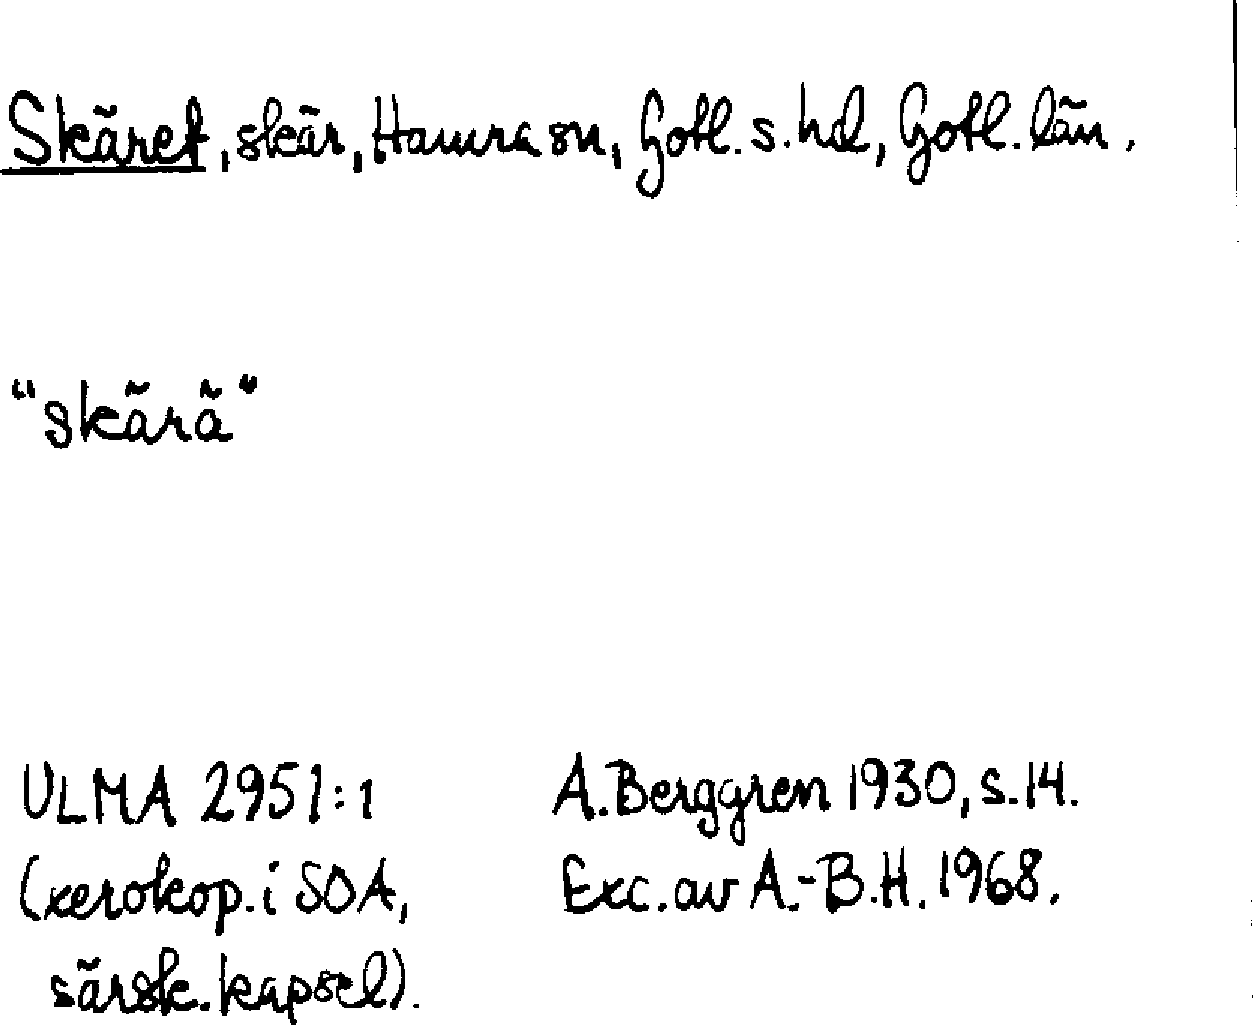 Skäret, skär, Hamra sn, Gotl. s. hd, Gotl. län.
"skärä"
ULMA 2951:1
(xerokop. i SOA,
särsk. kapsel).
A. Berggren 1930, s. 14.
Exc. av A.-B. H. 1968.